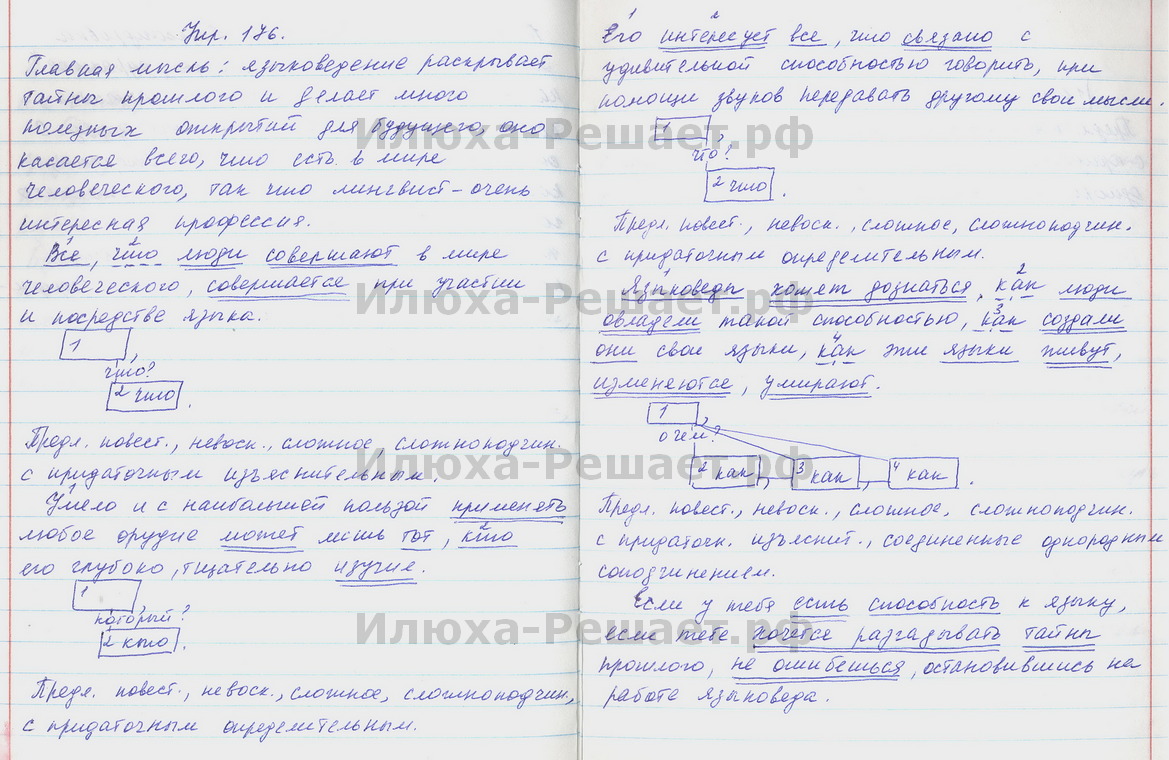 Упр. 176.
Главная мысль: языковедение раскрывает
тайны прошлого и делает много
полезных открытий для будущего, оно
касается всего, что есть в мире
человеческого, так что лингвист - очень
интересная профессия.
Всё, что люди совершают в мире
человеческого, совершается при участии
и посредстве языка.
1 ,
что?
2 что .
Предл. повест., невоск., сложное, сложноподчин.
с придаточным изъяснительным.
Умело и с наибольшей пользой применять
любое орудие может лишь тот, кто
его глубоко, тщательно изучие.
1 ,
который?
2 кто .
Предл. повест., невоск., сложное, сложноподчин,
с придаточным определительным.
Его интересует все, что связано с
удивительной способностью говорить, при
помощи звуков передавать другому свои мысли.
1 ,
что?
2 что .
Предл. повест., невоск., сложное, сложноподчин.
с придаточным определительным.
Языковеды хотят дознаться, как люди
овладели такой способностью, как создали
они свои языки, как эти языки живут,
изменяются, умирают.
1 ,
о чем?
2 как , 3 как , 4 как .
Предл. повест., невоск., сложное, сложноподчин.
с придаточн. изъяснит., соединенные однородным
соподчинением.
Если у тебя есть способность к языку,
если тебе хочется разгадывать тайны
прошлого, не ошибешься, остановившись на
работе языковеда.
Илюха-Решает.рф
Илюха-Решает.рф
Илюха-Решает.рф
Илюха-Решает.рф